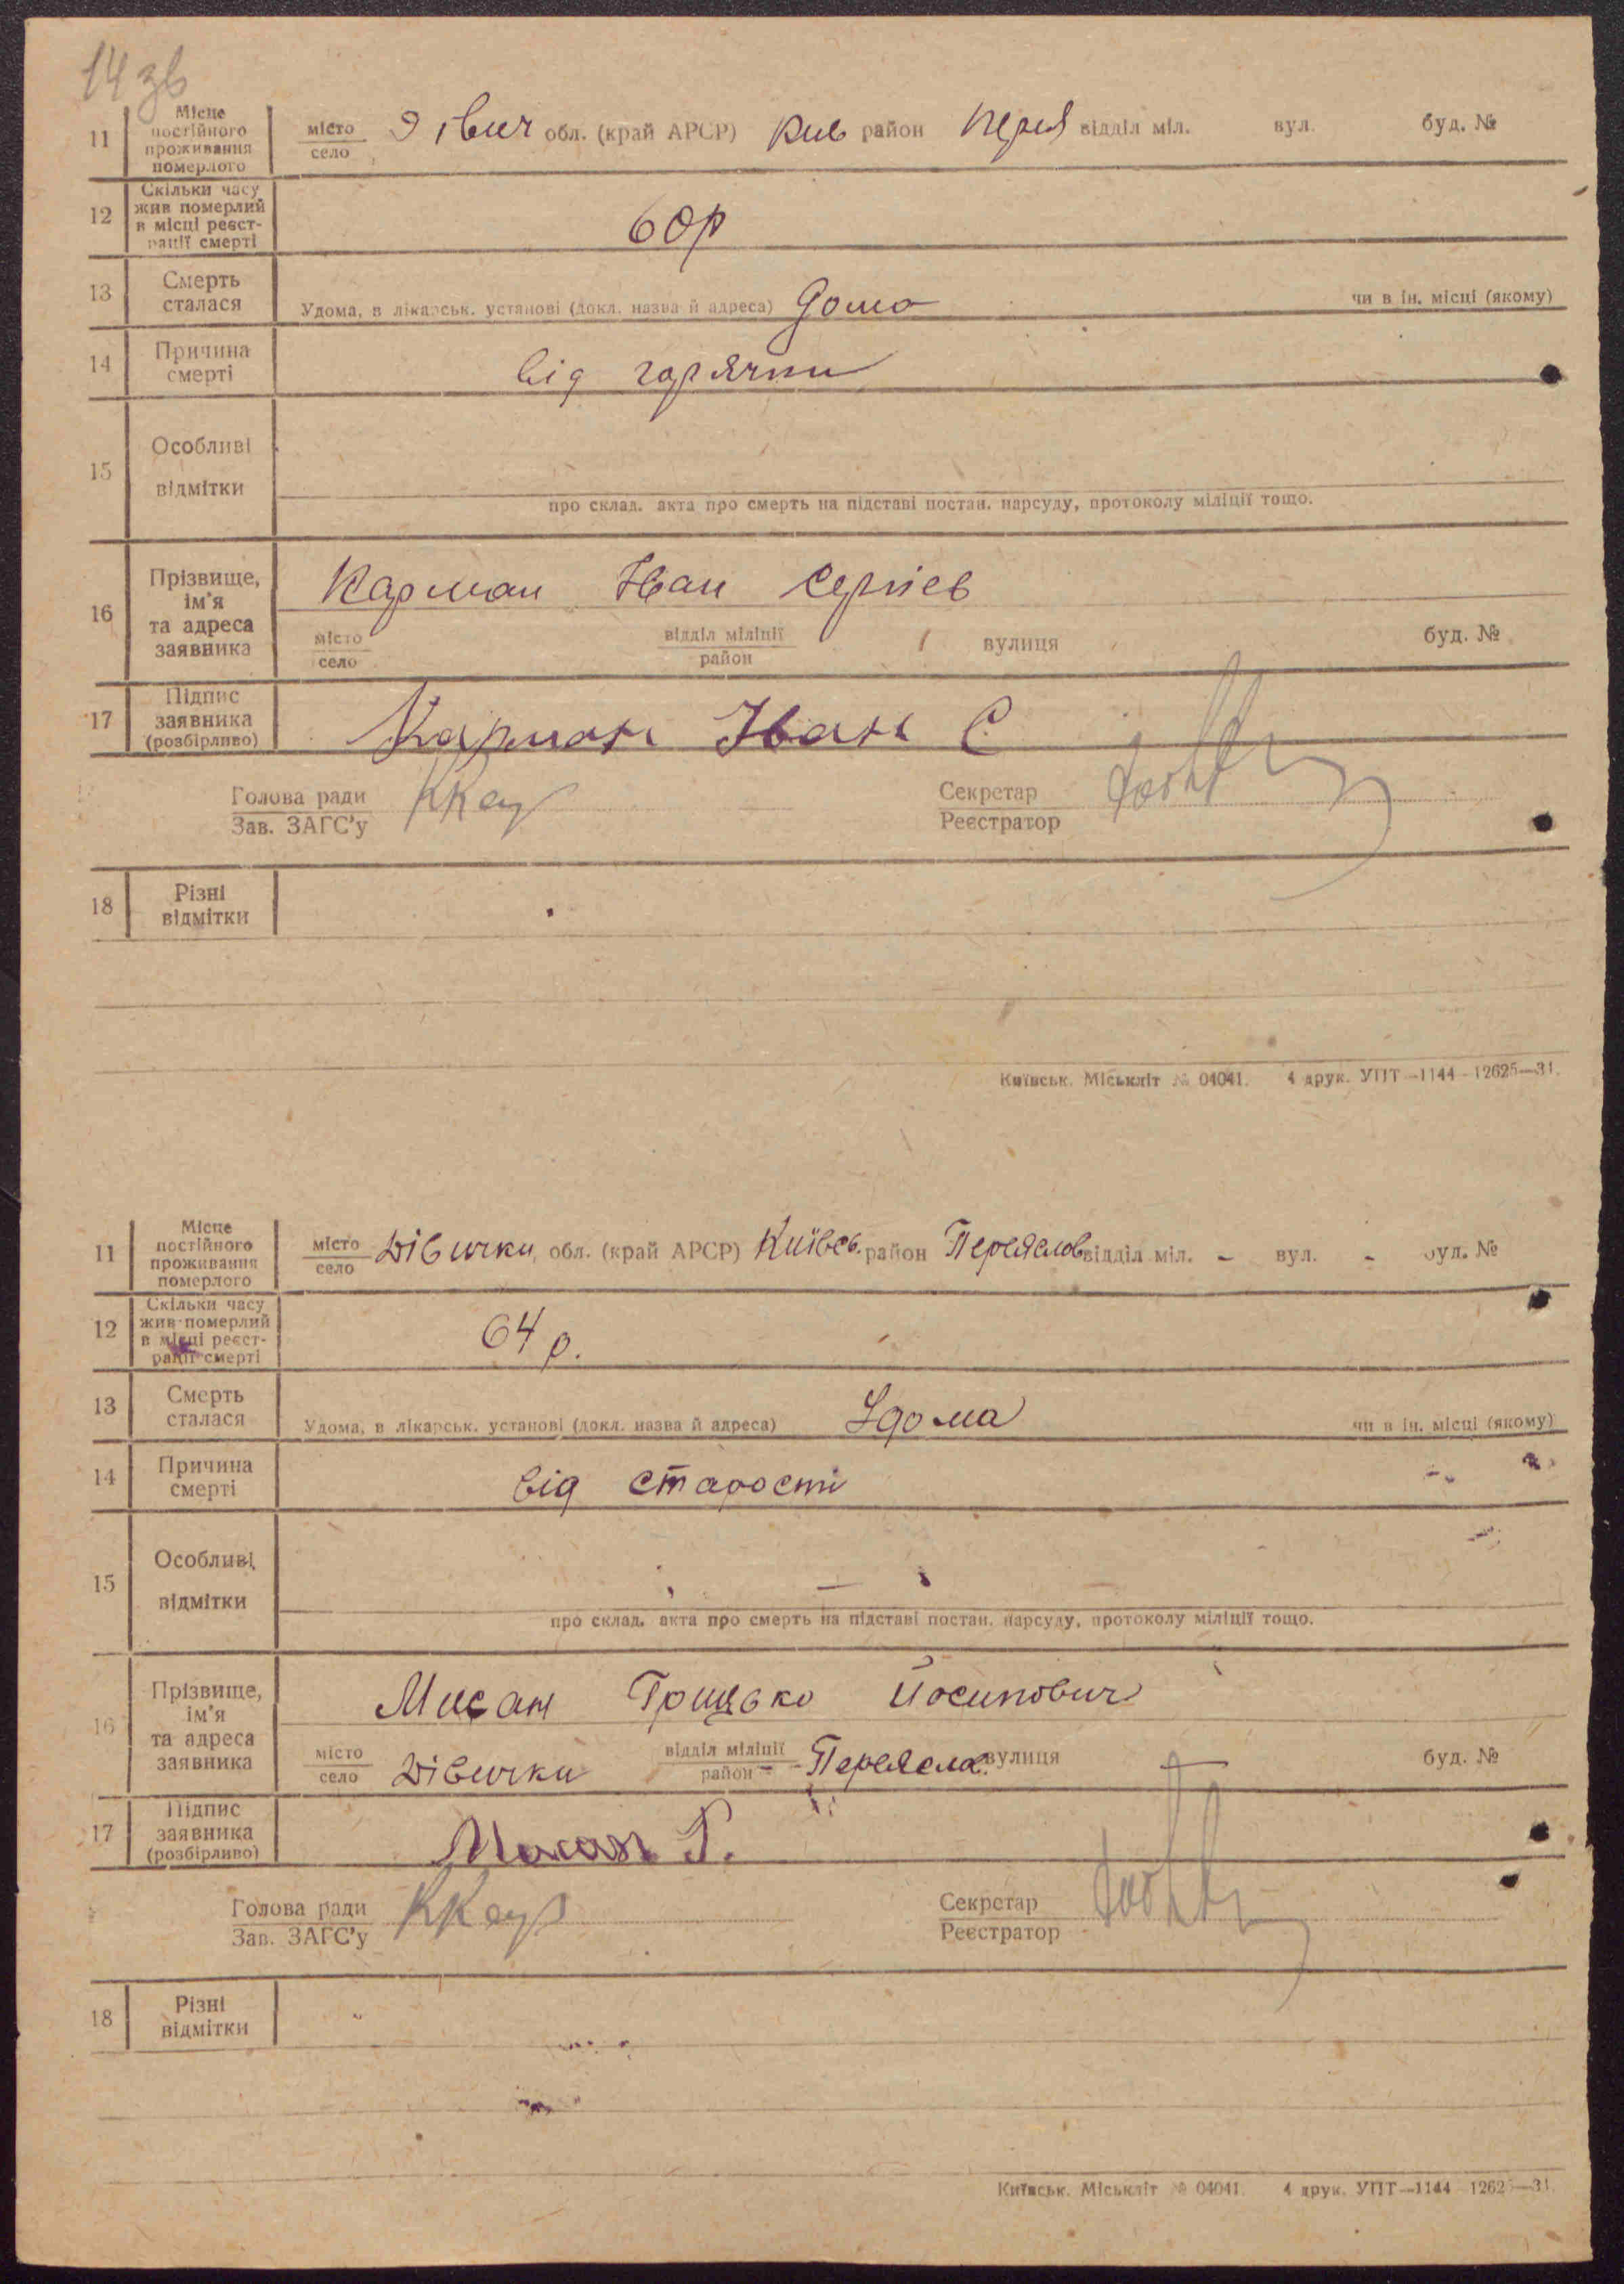 14 зв
11 Місце постійного проживання померлого місто село Дівич обл. (край АРСР) Київ район Перея відділ міл. вул. буд. №
12 Скільки часу жив померлий в місці реєстрації смерті 60 р
13 Смерть сталася Удома, в лікарськ. установі (докл. назва й адреса) Дома чи в ін. місці (якому)
14 Причина смерті від горячки
15 Особливі відмітки
про склад. акта про смерть на підставі постан. нарсуду, протоколу міліції тощо.
16 Прізвище, ім'я та адреса заявника Карман Іван Сергіев
місто село відділ міліції район вулиця буд. №
17 Підпис заявника (розбірливо) Карман Іван С
Голова ради Секретар
Зав. ЗАГС'у Реєстратор
18 Різні відмітки
Київськ. Міськліт № 04041. 4 друк. УПТ—1144—12625—31.
11 Місце постійного проживання померлого місто село Дівички обл. (край АРСР) Київсь. район Переяслов відділ міл. - вул. - буд. №
12 Скільки часу жив померлий в місці реєстрації смерті 64 р.
13 Смерть сталася Удома, в лікарськ. установі (докл. назва й адреса) Удома чи в ін. місці (якому)
14 Причина смерті від старости
15 Особливі відмітки —
про склад. акта про смерть на підставі постан. нарсуду, протоколу міліції тощо.
16 Прізвище, ім'я та адреса заявника Мисан Грицько Йосипович
місто село Дівички відділ міліції район Переясла. вулиця буд. №
17 Підпис заявника (розбірливо) Мисан Г.
Голова ради Секретар
Зав. ЗАГС'у Реєстратор
18 Різні відмітки
Київськ. Міськліт № 04041. 4 друк. УПТ—1144—12625—31.